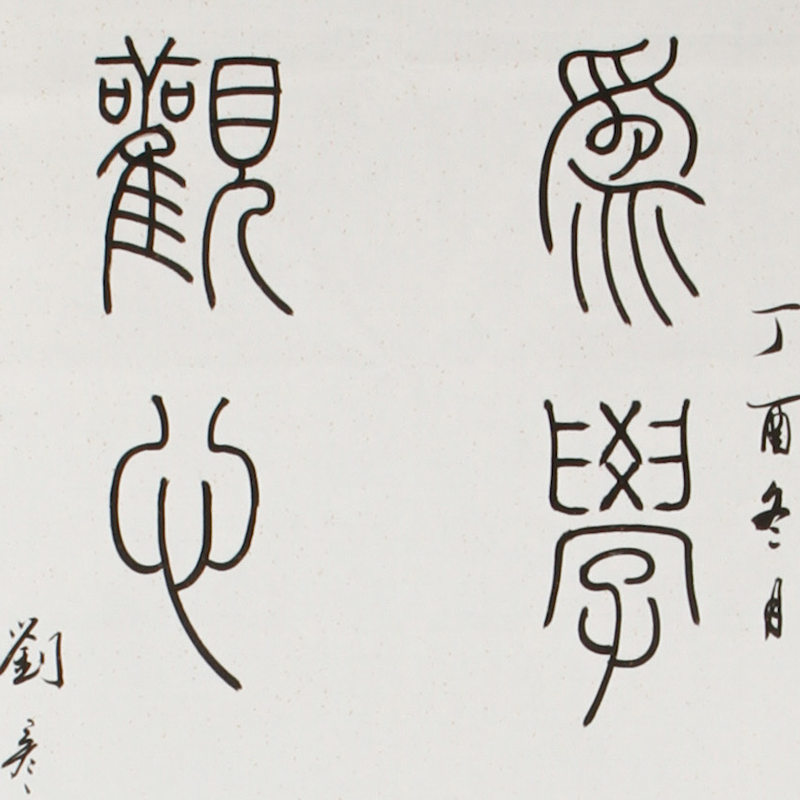 丁酉冬月
為學
觀心
劉彥